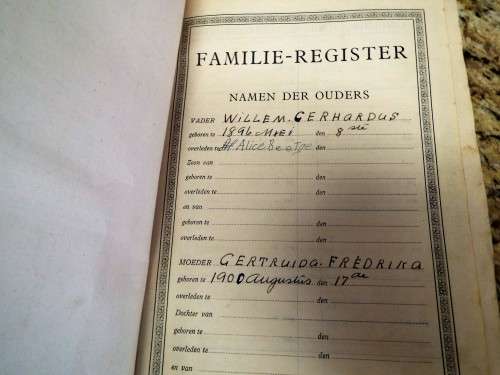 FAMILIE-REGISTER
NAMEN DER OUDERS
VADER WILLEM. GERHARDUS
geboren te 1896 Mei den 8 ste
overleden te Alice den
Zoon van
geboren te den
overleden te den
en van
geboren te den
overleden te den
MOEDER GERTRUIDA. FRÉDRIKA
geboren te 1900 Augustus. den 17 de
overleden te den
Dochter van
geboren te den
overleden te den
en van